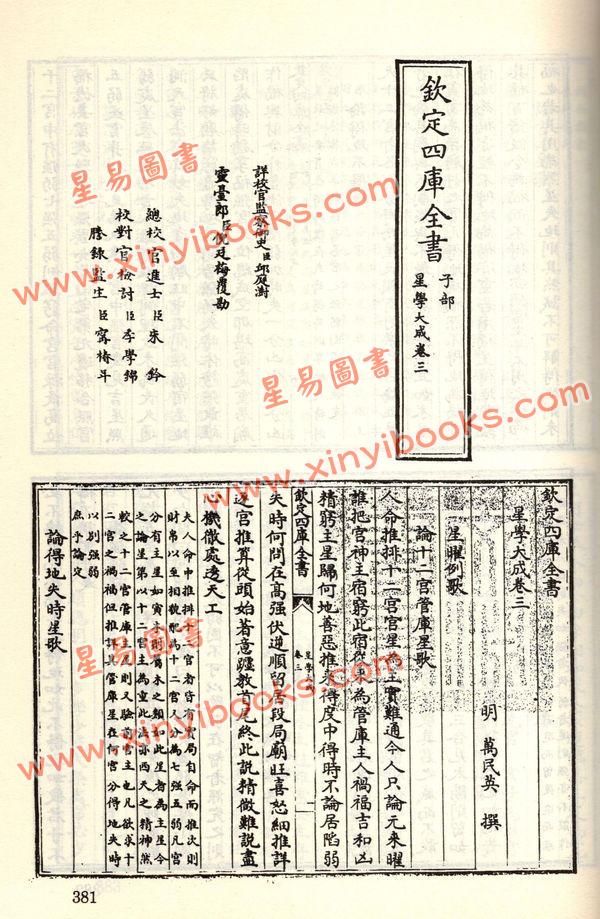 欽定四庫全書
子部
星學大成卷三
詳校官監察御史臣邱庭澍
靈臺郎臣倪廷梅覆勘
總校官進士臣朱鈐
校對官檢討臣李學錦
謄錄監生臣甯椿年
欽定四庫全書
星學大成卷三
明 萬民英 撰
星曜例歌
論十二宮管庫星歌
人命推排十二宮宮星為主實難通今人只論元來曜
誰把宮神主宿窮此宿從來為管庫主人禍福吉和凶
精窮主星歸何地善惡推尋得度中得時不論居陷弱
欽定四庫全書
星學大成
卷三
一
失時何問在高强伏逆順留居段局廟旺喜怒細推詳
逐宮推算從頭始著意躔教首尾終此説精微難説盡
心機微處透天工
夫人命中推排十二宮者皆有定局自命而推次則
財帛以至相貌配為十二宮人分為七强五弱凡宮
分有主星如寅亥則屬木之類如此星者為主星今
之論星第以十二宮主為重此法亦西天之精神然
較之十二宮管庫主凡則又驗於宮主也凡欲求十
二宮之禍福但推詳其管庫星在何宮分得地失時
以別强弱
庶乎論定
論得地失時星歌
381
星易圖書
www.xinyibooks.com
星易圖書
www.xinyibooks.com
星易圖書
www.xinyibooks.com
星易圖書
www.xinyibooks.com